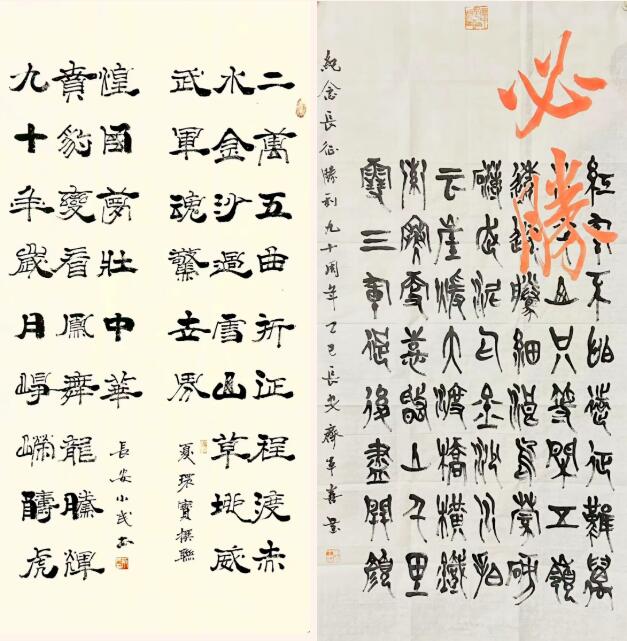 二萬五曲折征程渡赤
水金沙過雪山草地威
武軍魂驚世界
夏環寶撰聯
九十年歲月崢嶸虎
賁豹變看鳳舞龍騰輝
煌國夢壯中華
長安小武書
必勝
紅軍不怕遠征難萬
水千山只等閒五嶺
逶迤騰細浪烏蒙磅
礴走泥丸金沙水拍
云崖暖大渡橋橫鐵
索寒更喜岷山千里
雪三軍過後盡開顏
紀念長征勝利九十周年乙巳長安齊